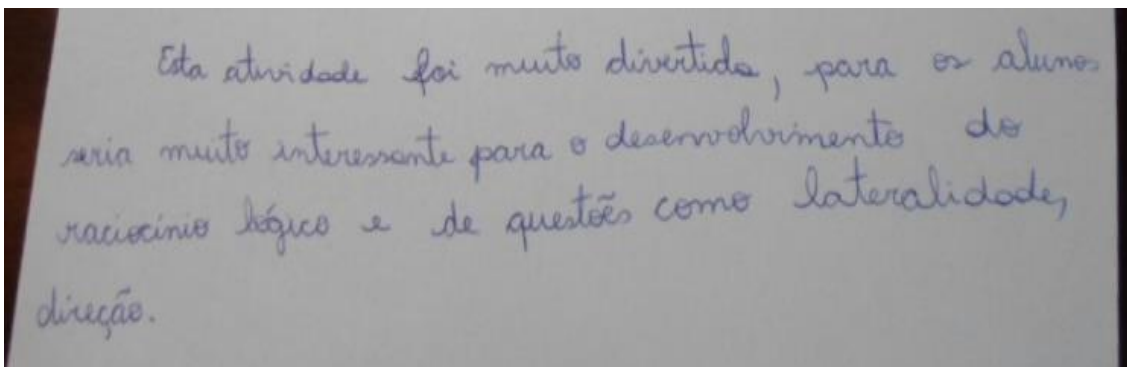 Esta atividade foi muito divertida, para os alunos
seria muito interessante para o desenvolvimento do
raciocínio lógico e de questões como lateralidade,
direção.